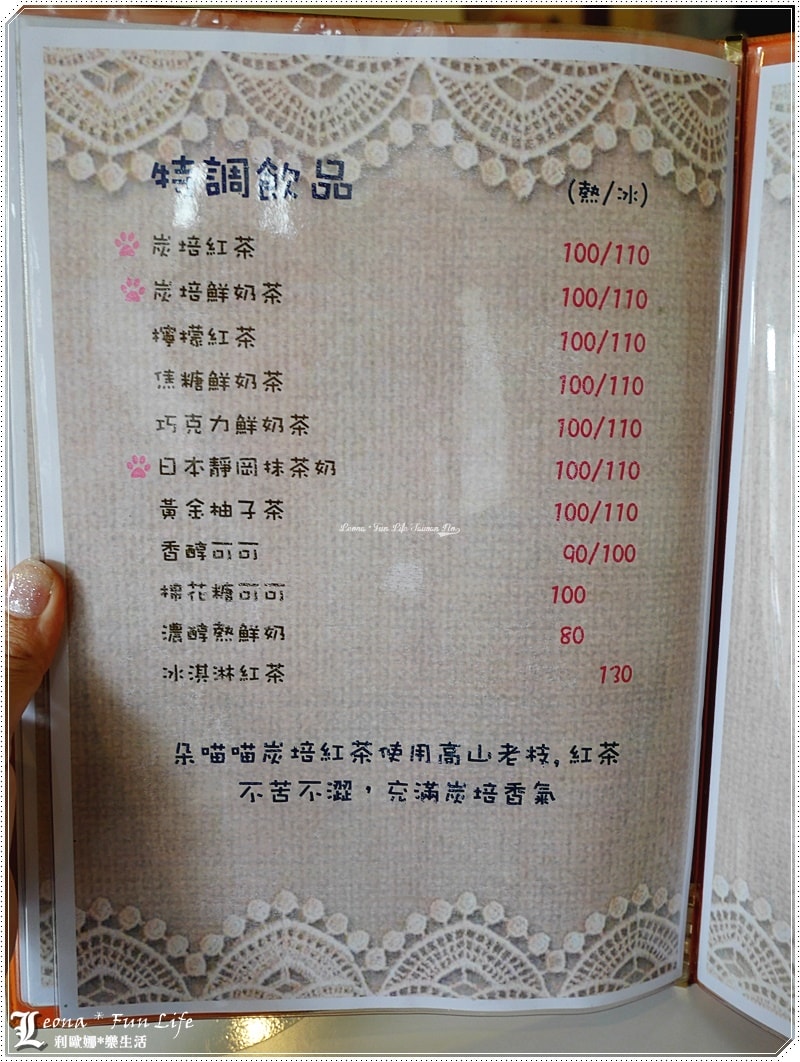 特調飲品 (熱/冰)
炭培紅茶 100/110
炭培鮮奶茶 100/110
檸檬紅茶 100/110
焦糖鮮奶茶 100/110
巧克力鮮奶茶 100/110
日本靜岡抹茶奶 100/110
黃金柚子茶 100/110
香醇可可 90/100
棉花糖可可 100
濃醇熱鮮奶 80
冰淇淋紅茶 130
朵喵喵炭培紅茶使用高山老枝,紅茶
不苦不澀，充滿炭培香氣
Leona * Fun Life
利歐娜*樂生活